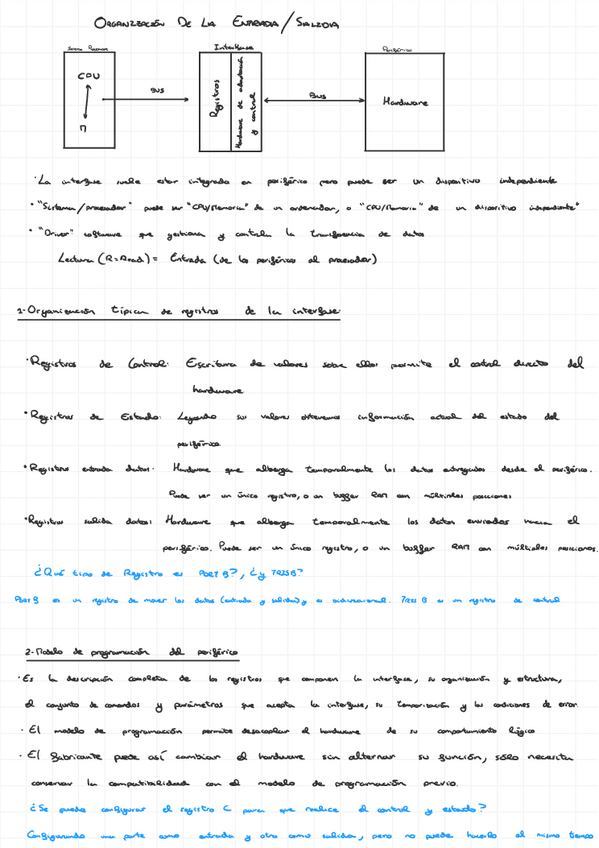 ORGANIZACIÓN DE LA ENTRADA/SALIDA
Interfase
Periférico
CPU
BUS
Registros
Hardware de adaptación
y control
BUS
Hardware
· La interfase suele estar integrada en periférico pero puede ser un dispositivo independiente
· "Sistema/procesador" puede ser "CPU/Memoria" de un ordenador, o "CPU/Memoria" de un dispositivo independiente"
· "Driver" software que gestiona y controla la transferencia de datos
Lectura (R=Read) = Entrada (de los periféricos al procesador)
1-Organización típica de registros de la interfase
· Registros de Control: Escritura de valores sobre ellos permite el control directo del
hardware
· Registros de Estado: Leyendo sus valores obtenemos información actual del estado del
periférico
· Registros entrada datos: Hardware que alberga temporalmente los datos entregados desde el periférico.
Puede ser un único registro, o un buffer RAM con múltiples posiciones
· Registros salida datos: Hardware que alberga temporalmente los datos enviados hacia el
periférico. Puede ser un único registro, o un buffer RAM con múltiples posiciones.
¿Qué tipo de Registro es PORT B?, ¿y TRISB?
PORT B es un registro de mover los datos (entrada y salida) y es bidireccional. TRIS B es un registro de control
2-Modelo de programación del periférico
· Es la descripción completa de los registros que componen la interfase, su organización y estructura,
el conjunto de comandos y parámetros que acepta la interfase, su temporización y las condiciones de error.
· El modelo de programación permite desacoplar el hardware de su comportamiento lógico
· El fabricante puede así cambiar el hardware sin alternar su función, sólo necesita
conservar la compatibilidad con el modelo de programación previo.
¿Se puede configurar el registro C para que realice el control y estado?
Configurando una parte como entrada y otra como salida, pero no puede hacerlo al mismo tiempo